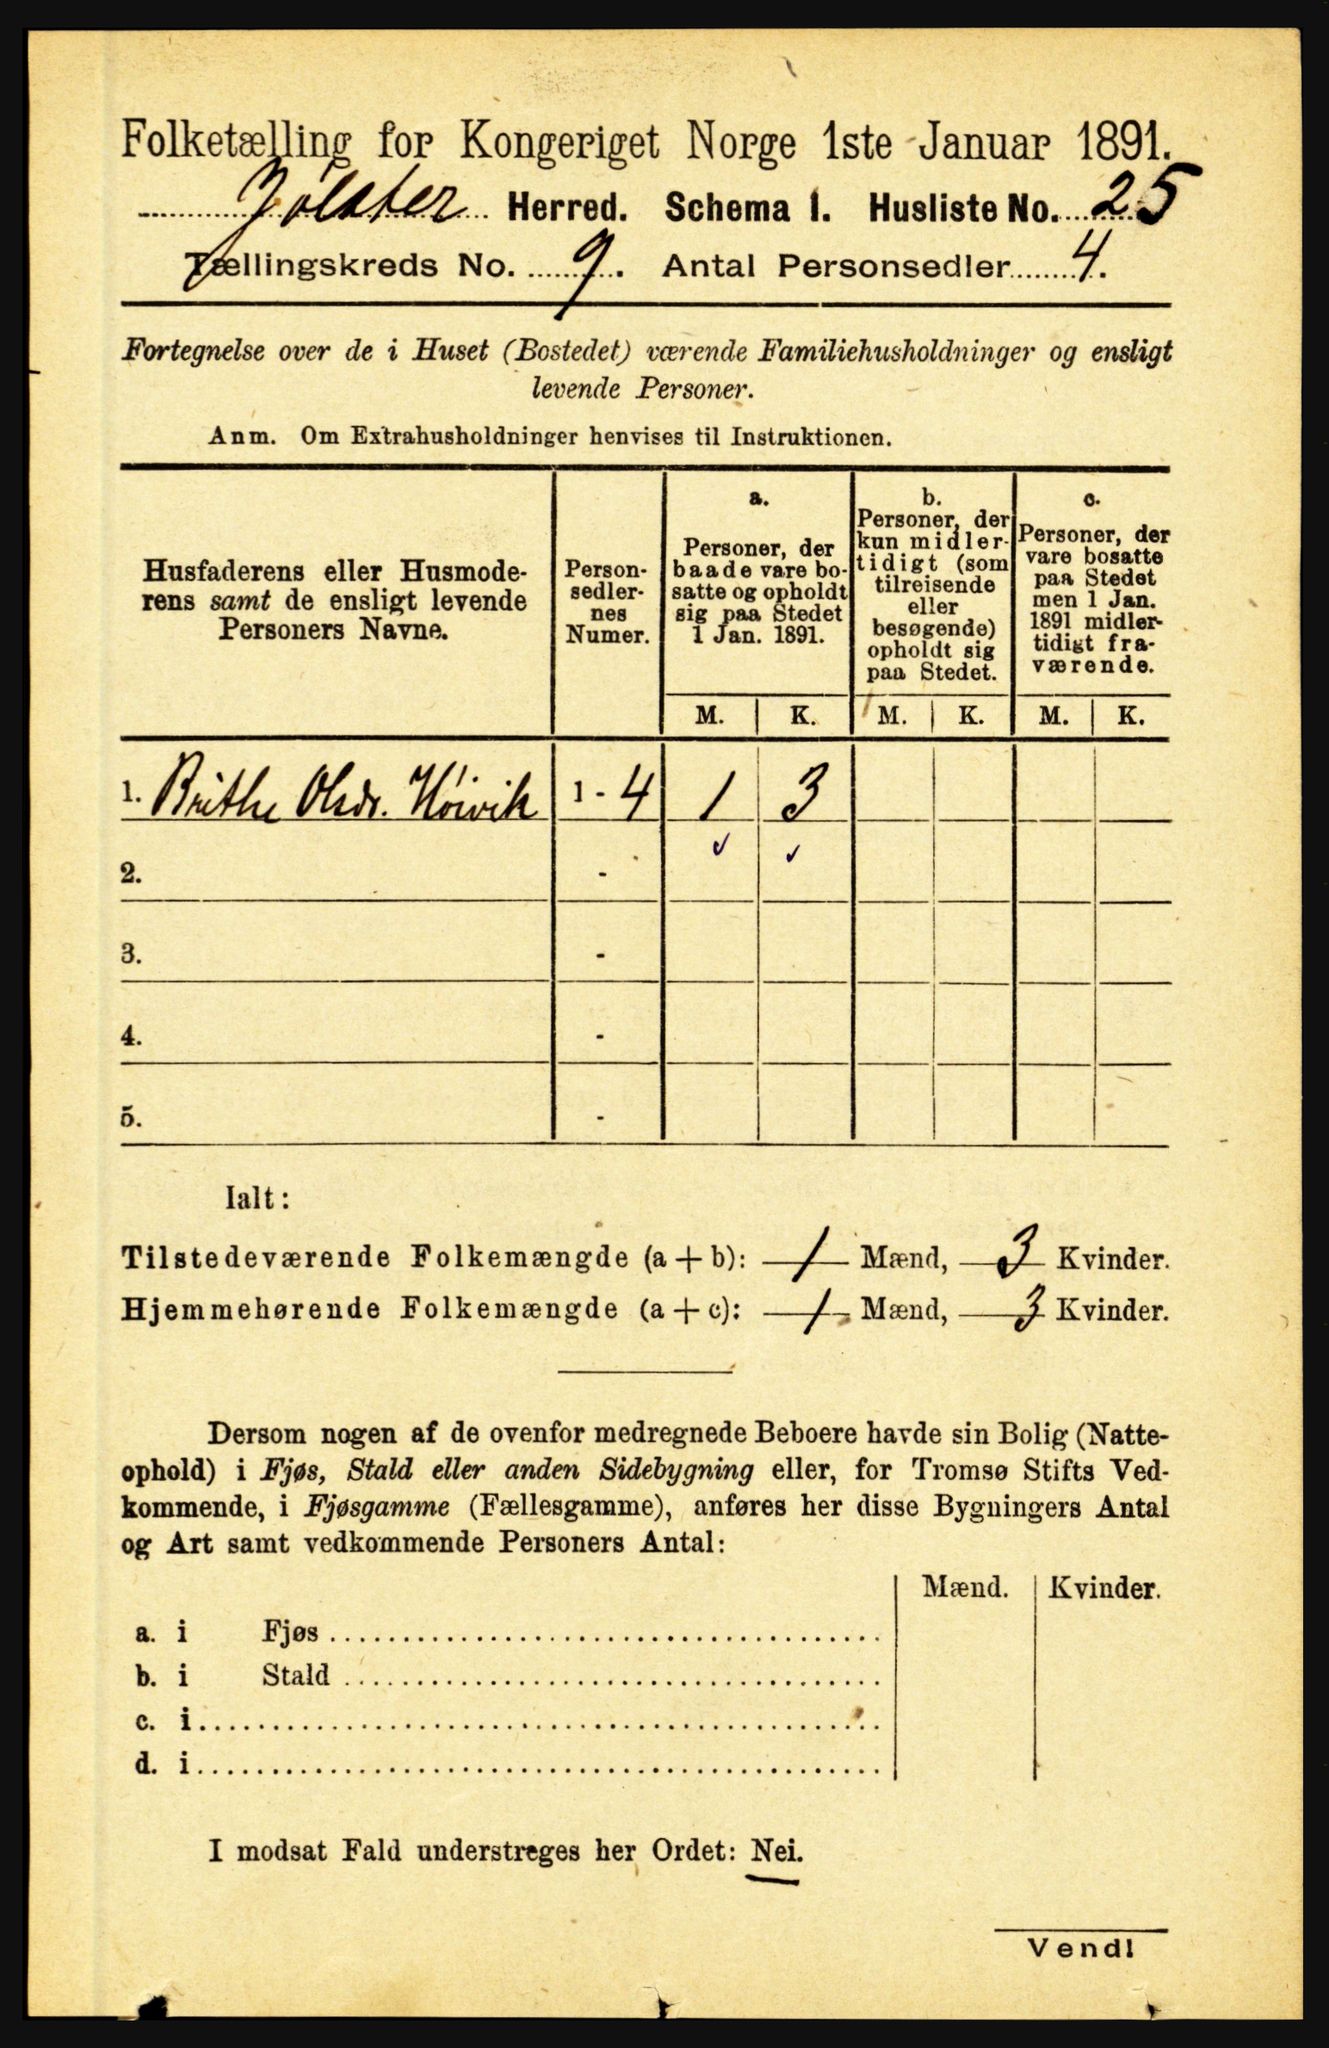 Folketælling for Kongeriget Norge 1ste Januar 1891.
Jølster Herred. Schema 1. Husliste No. 25
Tællingskreds No. 9. Antal Personsedler 4.
Fortegnelse over de i Huset (Bostedet) værende Familiehusholdninger og ensligt
levende Personer.
Anm. Om Extrahusholdninger henvises til Instruktionen.
Husfaderens eller Husmode-
rens samt de ensligt levende
Personers Navne.
Person-
sedler-
nes
Numer.
a.
Personer, der
baade vare bo-
satte og opholdt
sig paa Stedet
1 Jan. 1891.
b.
Personer, der
kun midler-
tidigt (som
tilreisende
eller
besøgende)
opholdt sig
paa Stedet.
c.
Personer, der
vare bosatte
paa Stedet
men 1 Jan.
1891 midler-
tidigt fra-
værende.
M. K. M. K. M. K.
1. Brithe Olsdr. Høivik 1 - 4 1 3
2. -
3. -
4. -
5. -
Ialt:
Tilstedeværende Folkemængde (a + b): 1 Mænd, 3 Kvinder.
Hjemmehørende Folkemængde (a + c): 1 Mænd, 3 Kvinder.
Dersom nogen af de ovenfor medregnede Beboere havde sin Bolig (Natte-
ophold) i Fjøs, Stald eller anden Sidebygning eller, for Tromsø Stifts Ved-
kommende, i Fjøsgamme (Fællesgamme), anføres her disse Bygningers Antal
og Art samt vedkommende Personers Antal:
Mænd. Kvinder.
a. i Fjøs
b. i Stald
c. i
d. i
I modsat Fald understreges her Ordet: Nei.
Vend!